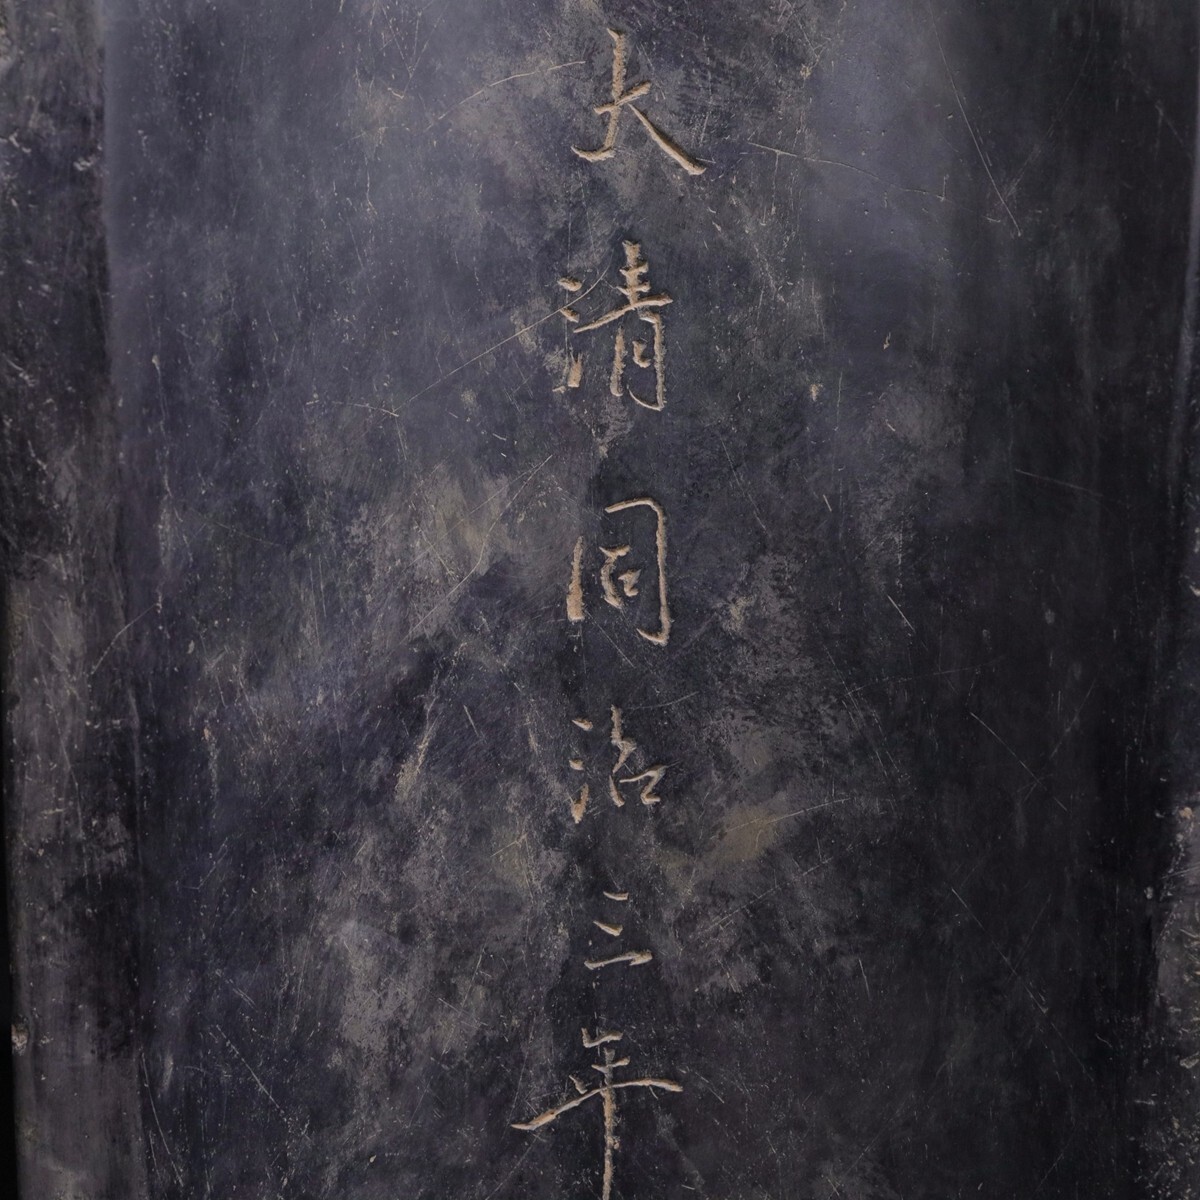 大清同治三年